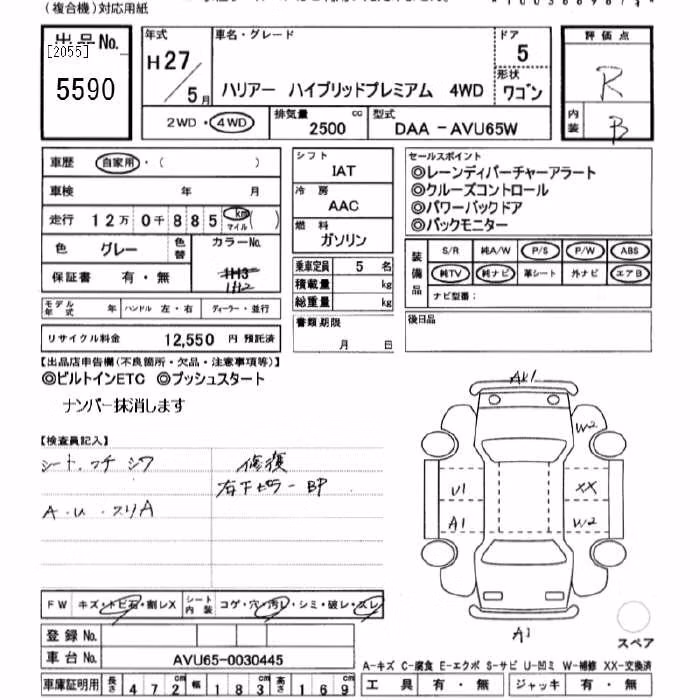 (複合機)対応用紙
出品No.
[2055]
5590
年式
H27/5月
車名・グレード
ハリアー ハイブリッドプレミアム 4WD
ドア
5
形状
ワゴン
評価点
R
内装
B
2WD・4WD
排気量
2500 cc
型式
DAA-AVU65W
車歴 自家用・( )
車検 年 月
走行 12万0千885 km マイル ( )
色 グレー 色替 カラーNo.
1H2
保証書 有・無
モデル年式 年 ハンドル 左・右 ディーラー・並行
リサイクル料金 12,550 円 預託済
シフト
IAT
冷房
AAC
燃料
ガソリン
乗車定員 5 名
積載量 kg
総重量 kg
書類期限
月 日
セールスポイント
◎レーンディパーチャーアラート
◎クルーズコントロール
◎パワーバックドア
◎バックモニター
装備品
S/R 純A/W P/S P/W ABS
純TV 純ナビ 革シート 外ナビ エアB
ナビ型番:
後日品
【出品店申告欄(不良箇所・欠品・注意事項等)】
◎ビルトインETC ◎プッシュスタート
ナンバー抹消します
【検査員記入】
シート.コゲ シワ
A.U.スリA
修復
右下ピラーBP
W2
U1 XX
A1 W2
A1
スペア
FW キズ・トビ石・割レX シート内装 コゲ・穴・汚レ・シミ・破レ・スレ
登録No.
車台No. AVU65-0030445
A-キズ C-腐食 E-エクボ S-サビ U-凹ミ W-補修 XX-交換済
車庫証明用 長さ 472 幅 183 高さ 169
工具 有・無 ジャッキ 有・無